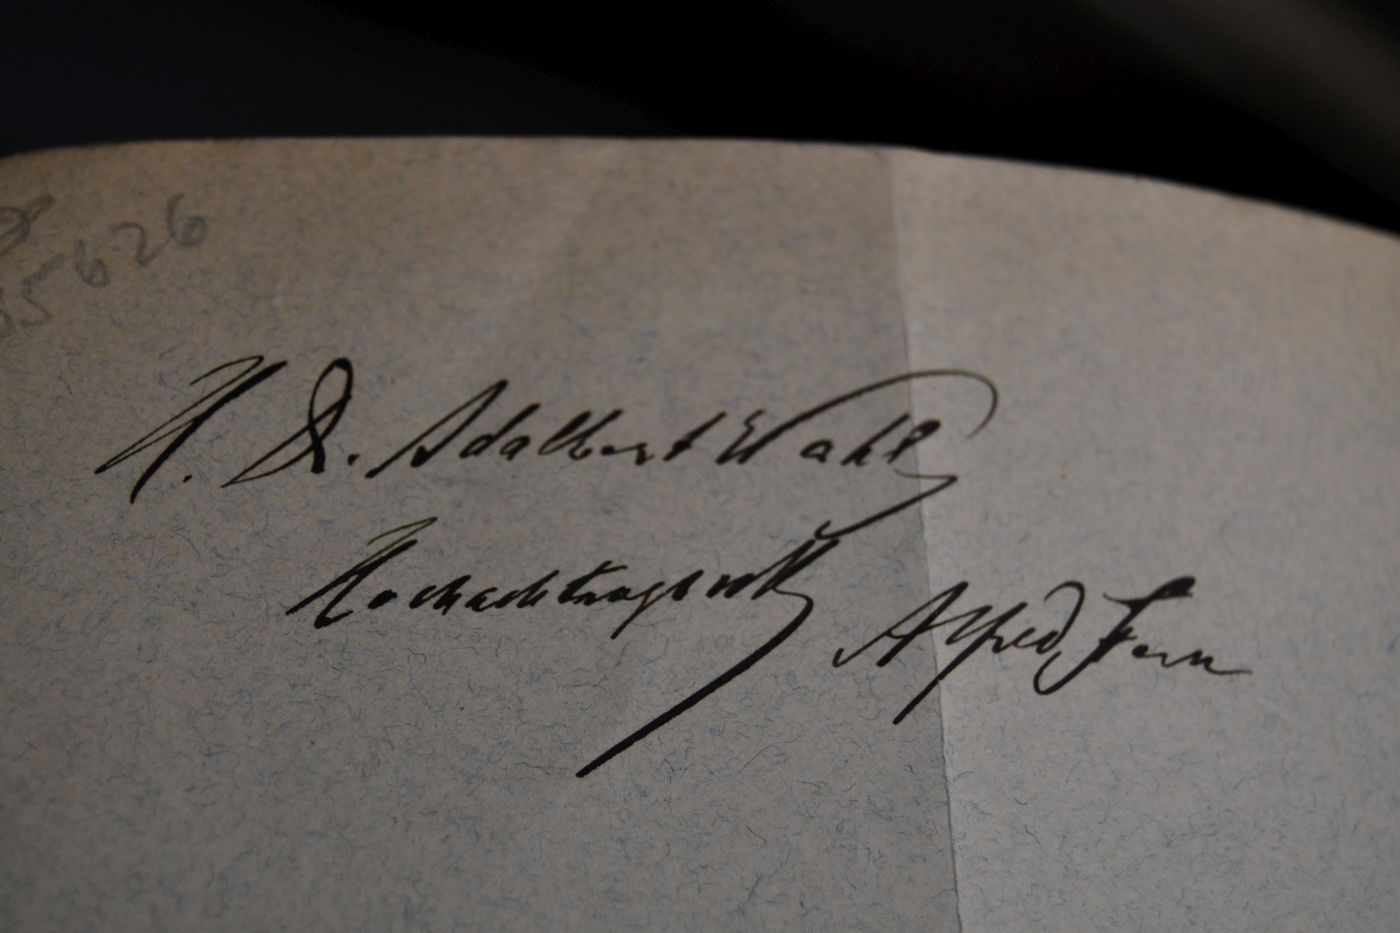 5626
H. D. Adalbert Wahl
Hochachtungsvoll
Alfred Stern